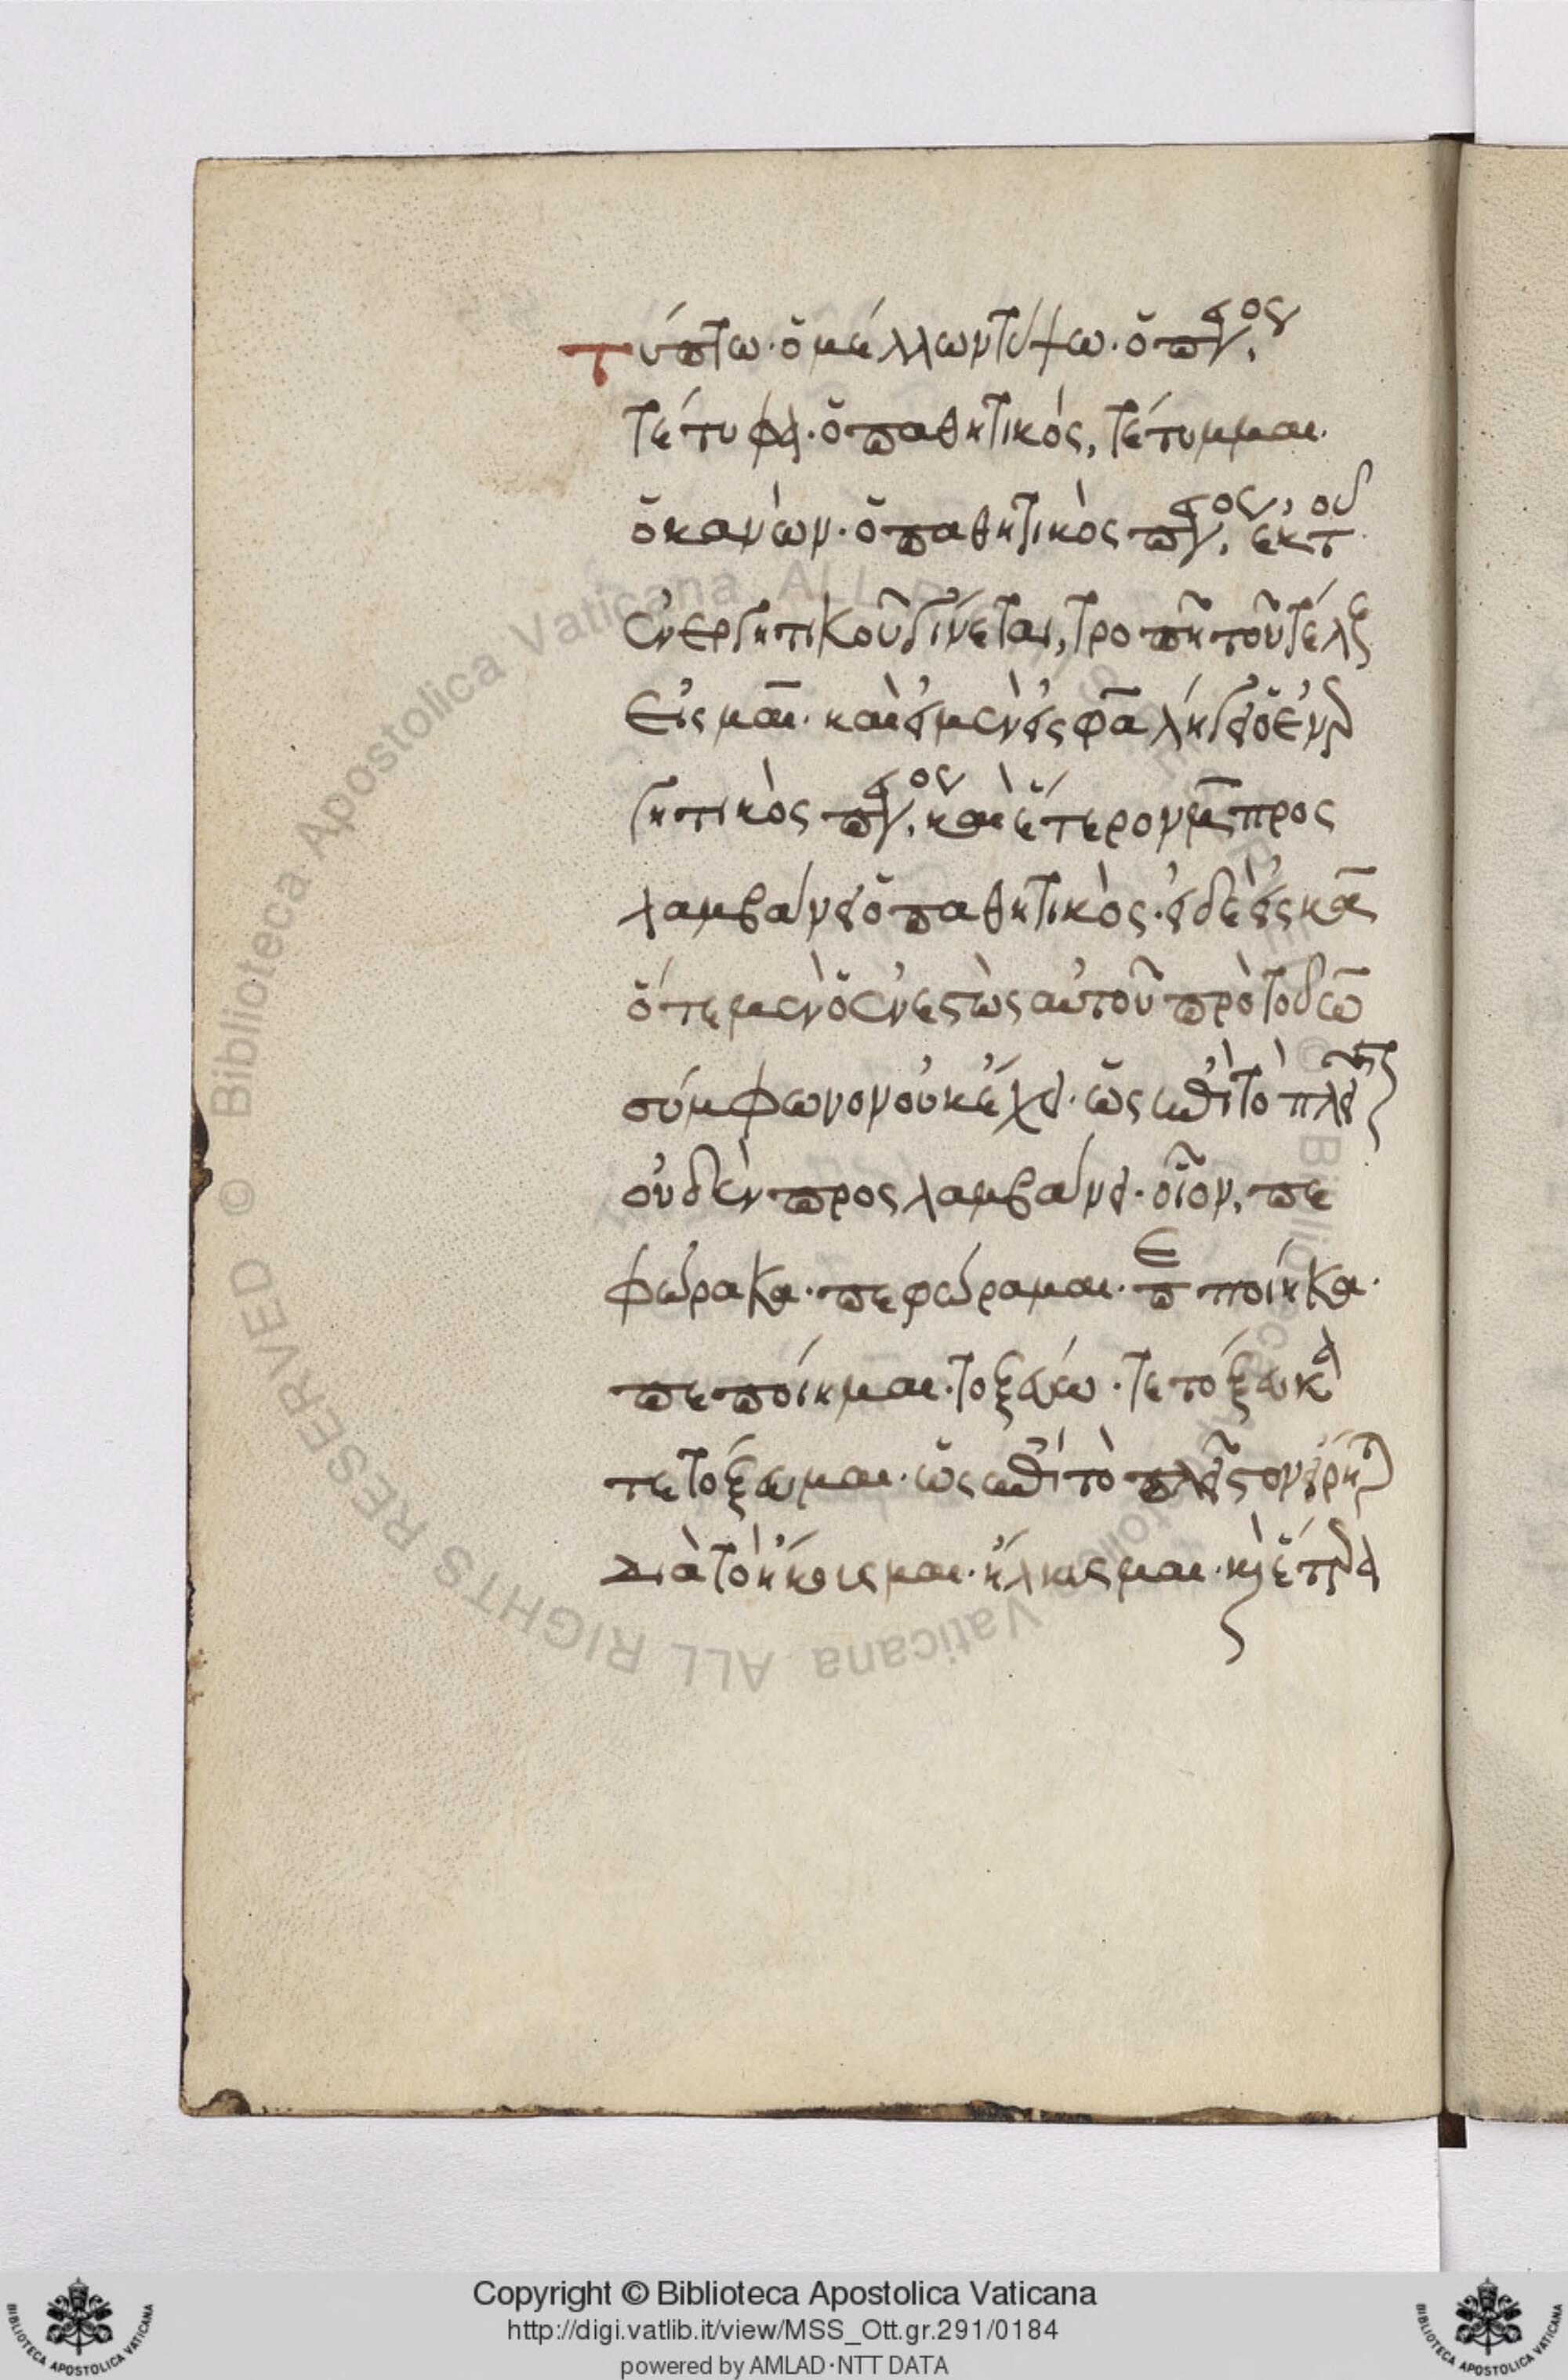 τύπτω· ὁ μέλλων τύψω· ὁ π
τέτυφα· ὁ παθητικός, τέτυμμαι·
ὁ κανών· ὁ παθητικὸς π ἐκ τοῦ
ἐνεργητικοῦ γίνεται, τροπῆ τοῦ τέλους
εἰς μαι· καὶ εἰ μὲν εἰς φα λήγει ὁ ἐνερ
γητικὸς π καὶ ἕτερον μ προς
λαμβάνει ὁ παθητικός· εἰ δὲ εἰς κα
ὅτε μὲν ὁ ἐνεστὼς αὐτοῦ πρὸ τοῦ ω
σύμφωνον οὐκ ἔχει· ὡς ἐπὶ τὸ πλεῖστον
οὐδὲν προςλαμβάνει· οἷον, πε
φώρακα· πεφώραμαι· πεποίηκα·
πεποίημαι· τοξεύω· τετόξευκα
τετόξευμαι· ὡς ἐπὶ τὸ πλεῖστον εἴρηται
διὰ τὸ ἤκουσμαι· κέλευσμαι· καὶ ἕτερα
Biblioteca Apostolica Vaticana ALL RIGHTS RESERVED ©
Copyright © Biblioteca Apostolica Vaticana
http://digi.vatlib.it/view/MSS_Ott.gr.291/0184
powered by AMLAD·NTT DATA
BIBLIOTECA APOSTOLICA VATICANA
BIBLIOTECA APOSTOLICA VATICANA